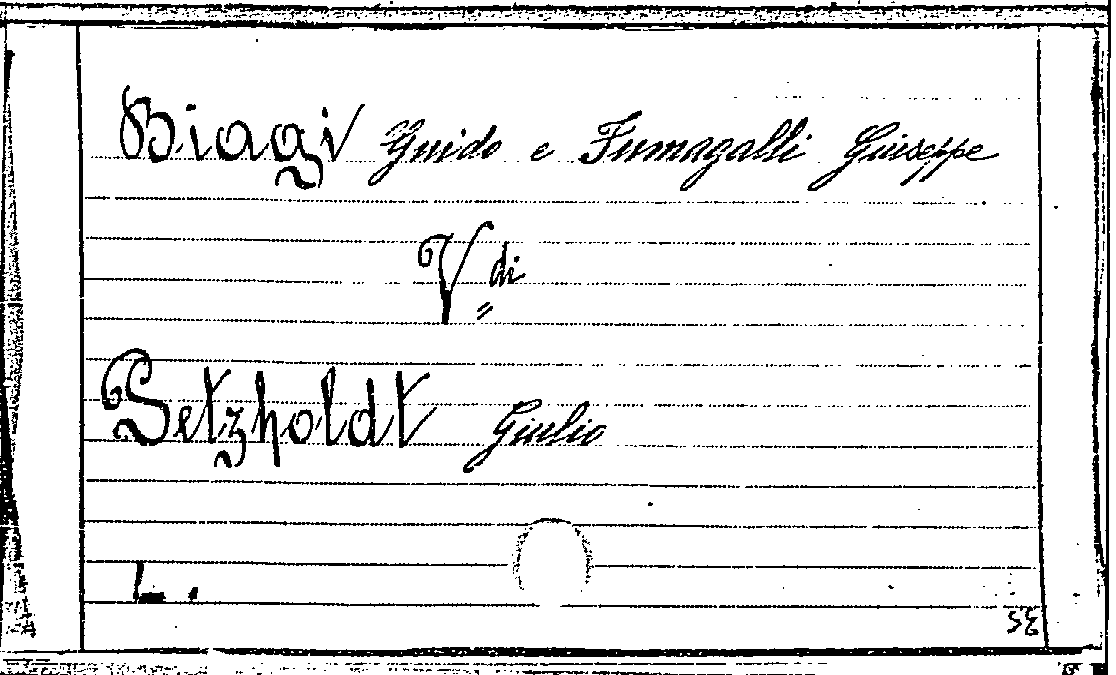 Biagi Guido e Fumagalli Giuseppe
V di
Petzholdt Giulio
L.